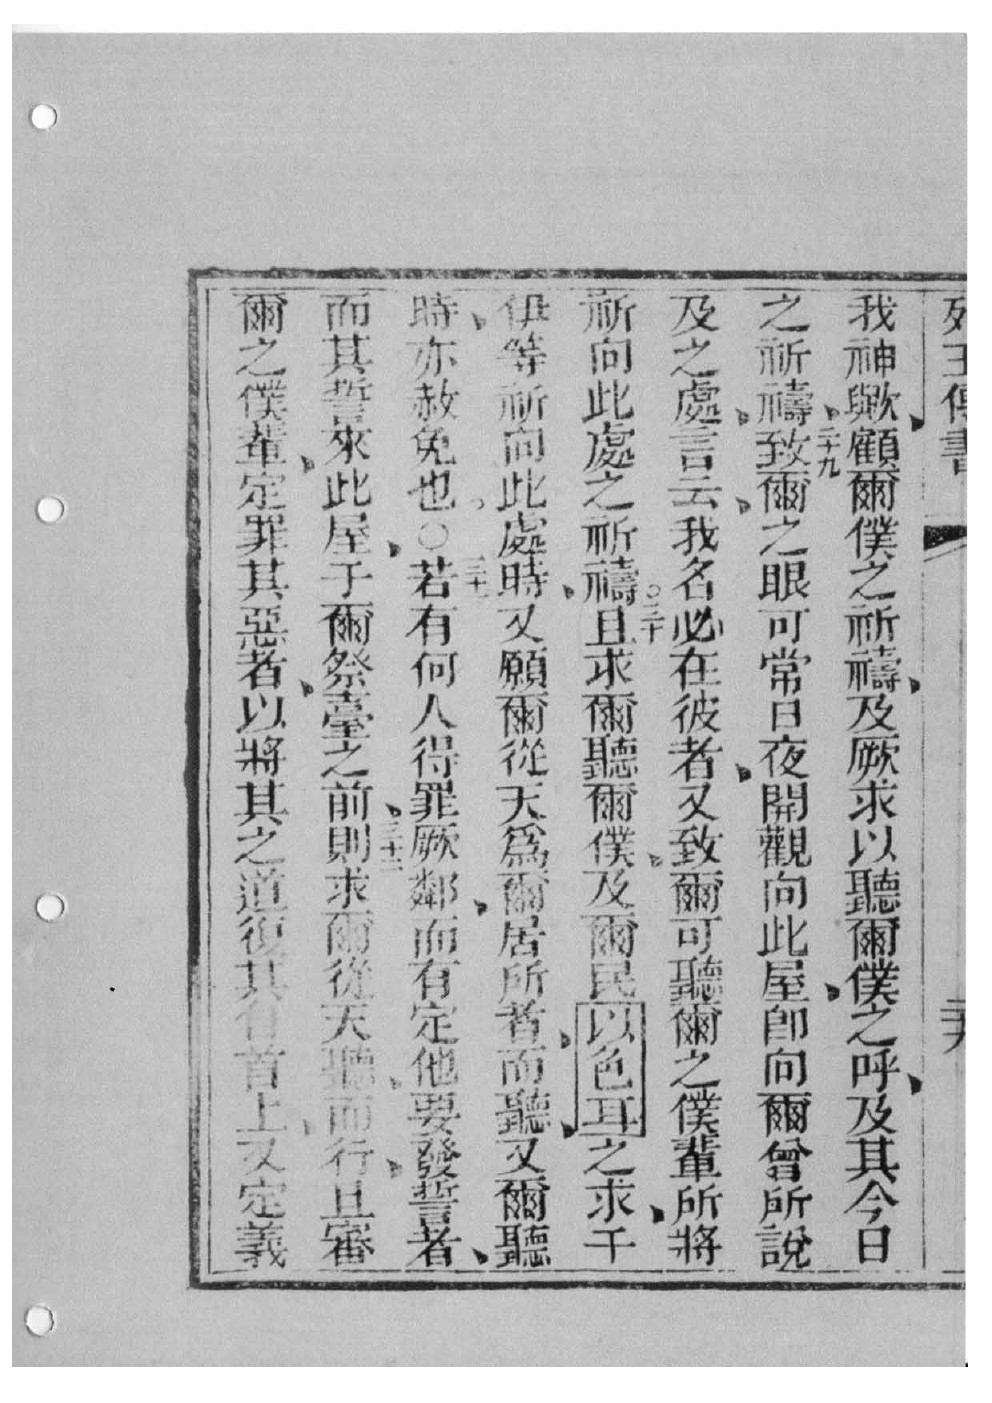 列王傳書
我神歟顧爾僕之祈禱及厥求以聽爾僕之呼及其今日
之祈禱二十九致爾之眼可常日夜開觀向此屋卽向爾曾所說
及之處言云我名必在彼者又致爾可聽爾之僕輩所將
祈向此處之祈禱○三十且求爾聽爾僕及爾民以色耳之求于
伊等祈向此處時又願爾從天爲爾居所者而聽又爾聽
時亦赦免也○三十一若有何人得罪厥鄰而有定他要發誓者
而其誓來此屋于爾祭臺之前三十二則求爾從天聽而行且審
爾之僕輩定罪其惡者以將其之道復其自首上又定義